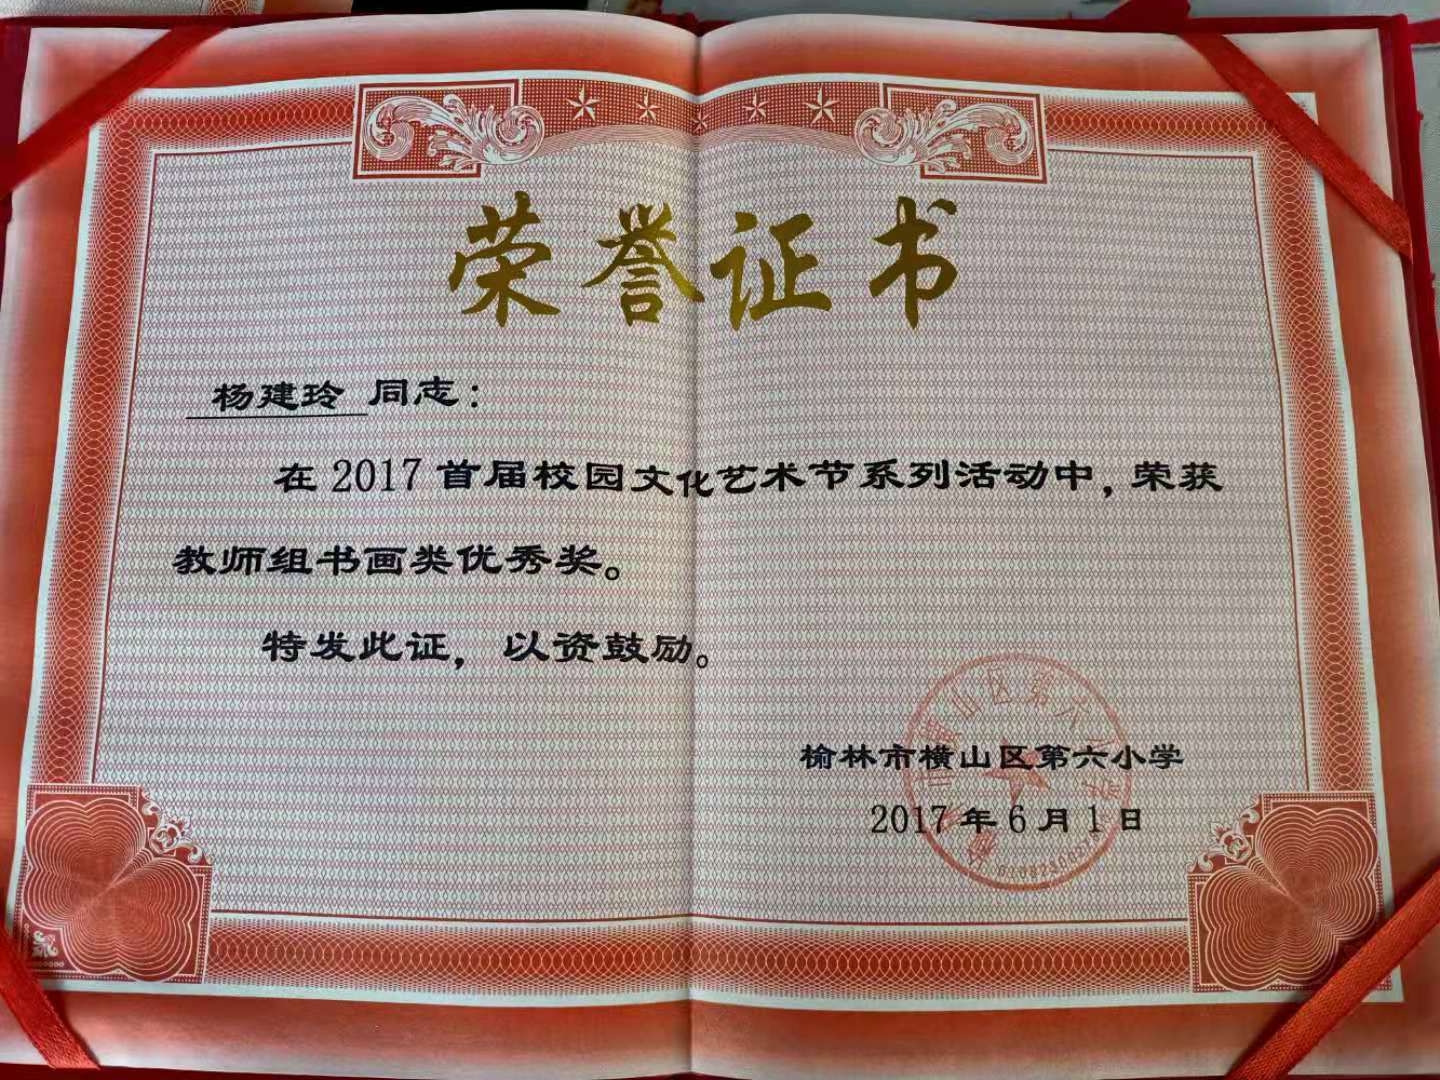 荣誉证书
杨建玲 同志：
在2017首届校园文化艺术节系列活动中，荣获
教师组书画类优秀奖。
特发此证，以资鼓励。
榆林市横山区第六小学
2017年6月1日